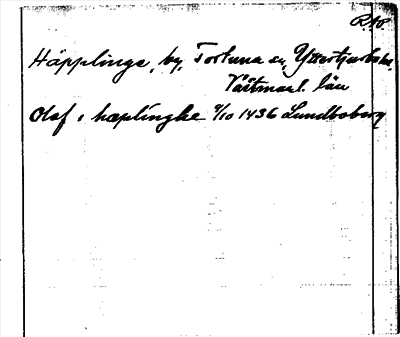 Häpplinge, by, Fortuna sn, Yttertjurbo hd,
Västmanl. län
Olof i hæplinghe 9/10 1436 Lundboberg